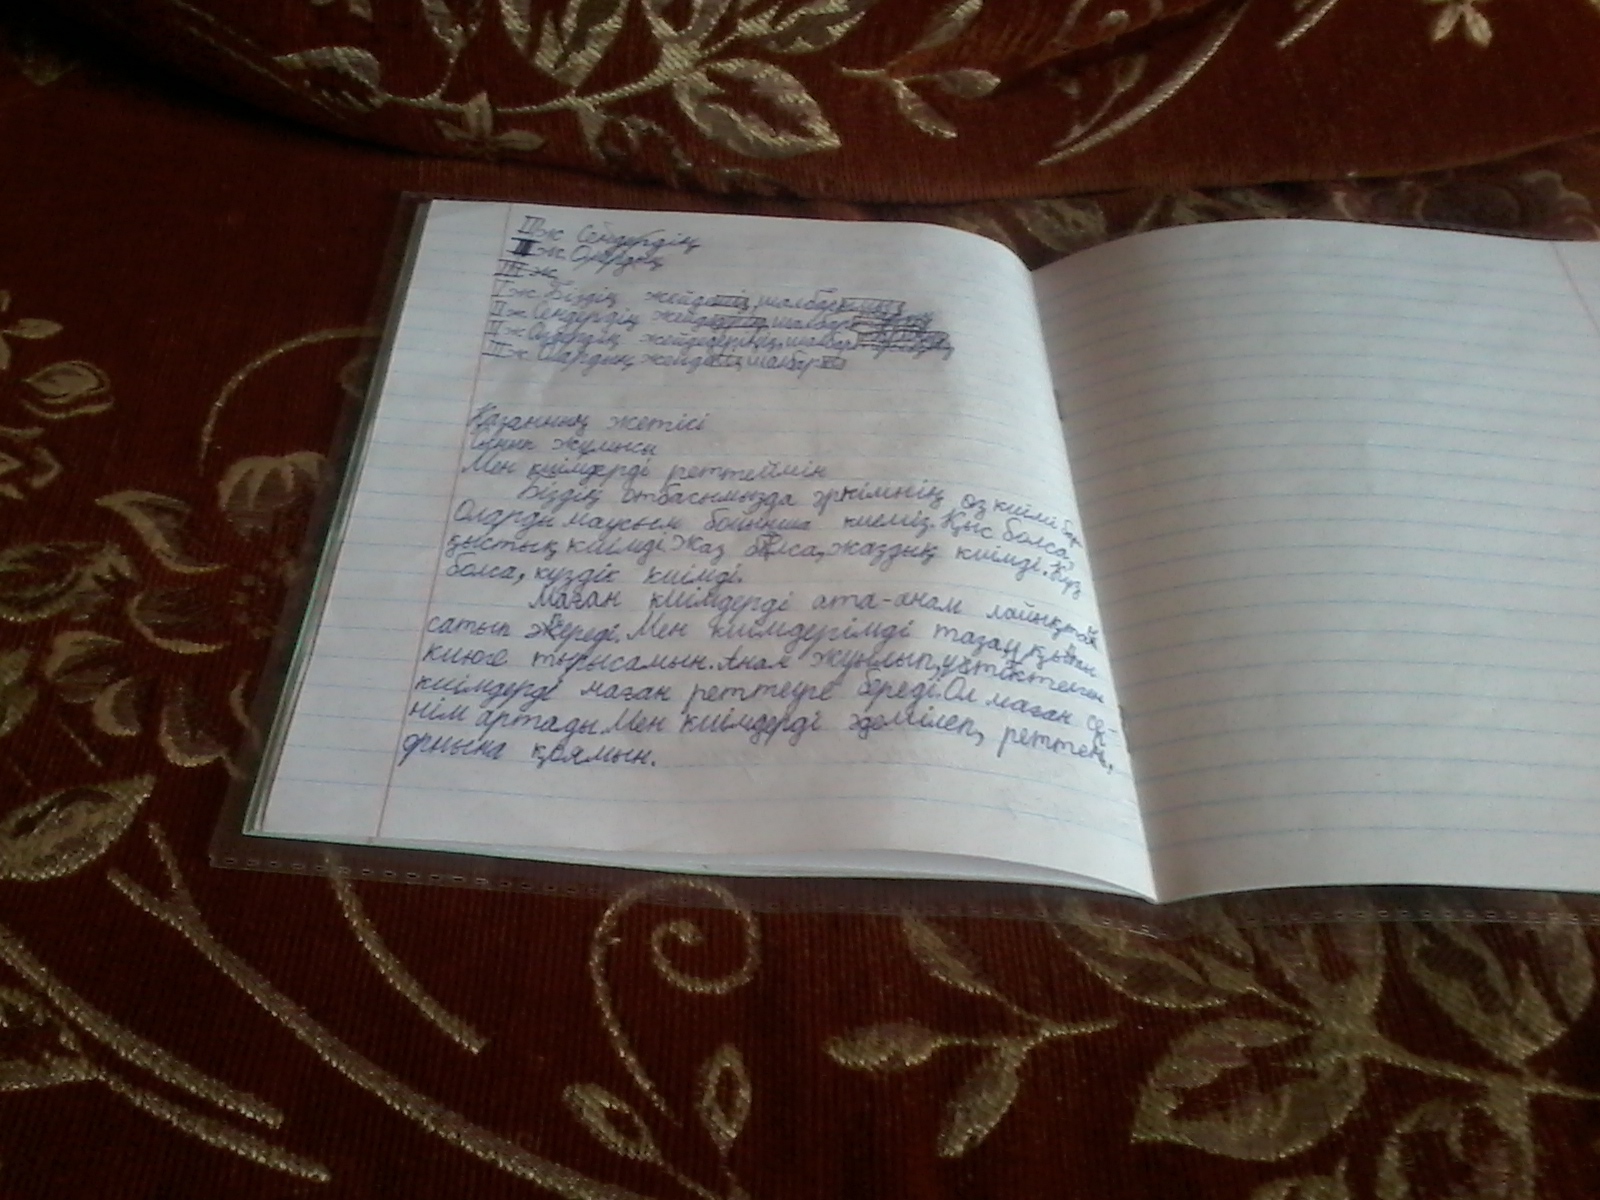 II ж Сендердің
III ж Олардың
III ж
I ж Біздің жейде шалбар
II ж Сендердің жейде шалбар
II ж жейделеріңіз, шалбар
III ж Олардың жейде шалбар
Қазанның жетісі
Сынып жұмысы
Мен киімдерді реттеймін
Біздің отбасымызда әркімнің өз киімі бар
Оларды маусым бойынша киеміз. Қыс болса,
қыстық киімді. Жаз болса, жаздық киімді. Күз
болса, күздік киімді.
Маған киімдерді ата-анам лайықтап
сатып береді. Мен киімдерімді таза
киюге тырысамын. Анам жуылып, үтіктелген
киімдерді маған реттеуге береді. Ол маған се-
нім артады. Мен киімдерді әдемілеп, реттеп,
орнына қоямын.